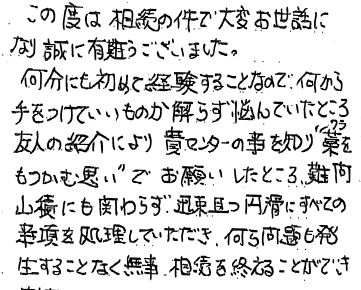 この度は 相続の件で大変お世話に
なり誠に有難うございました。
何分にも初めて経験することなので、何から
手をつけていいものか解らず悩んでいたところ
友人の紹介により 貴センターの事を知り"藁を
ワラ
もつかむ思い"で お願いしたところ、難問
山積にも関わらず、迅速且つ円滑にすべての
事項を処理していただき、何ら問題も発
生することなく無事、相続を終えることができ